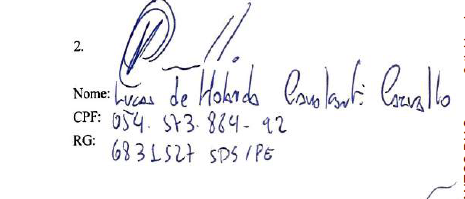 2.
Nome: Lucas de Holanda Cavalcanti Carvalho
CPF: 054. 573. 884 - 92
RG: 6831527 SDS/PE